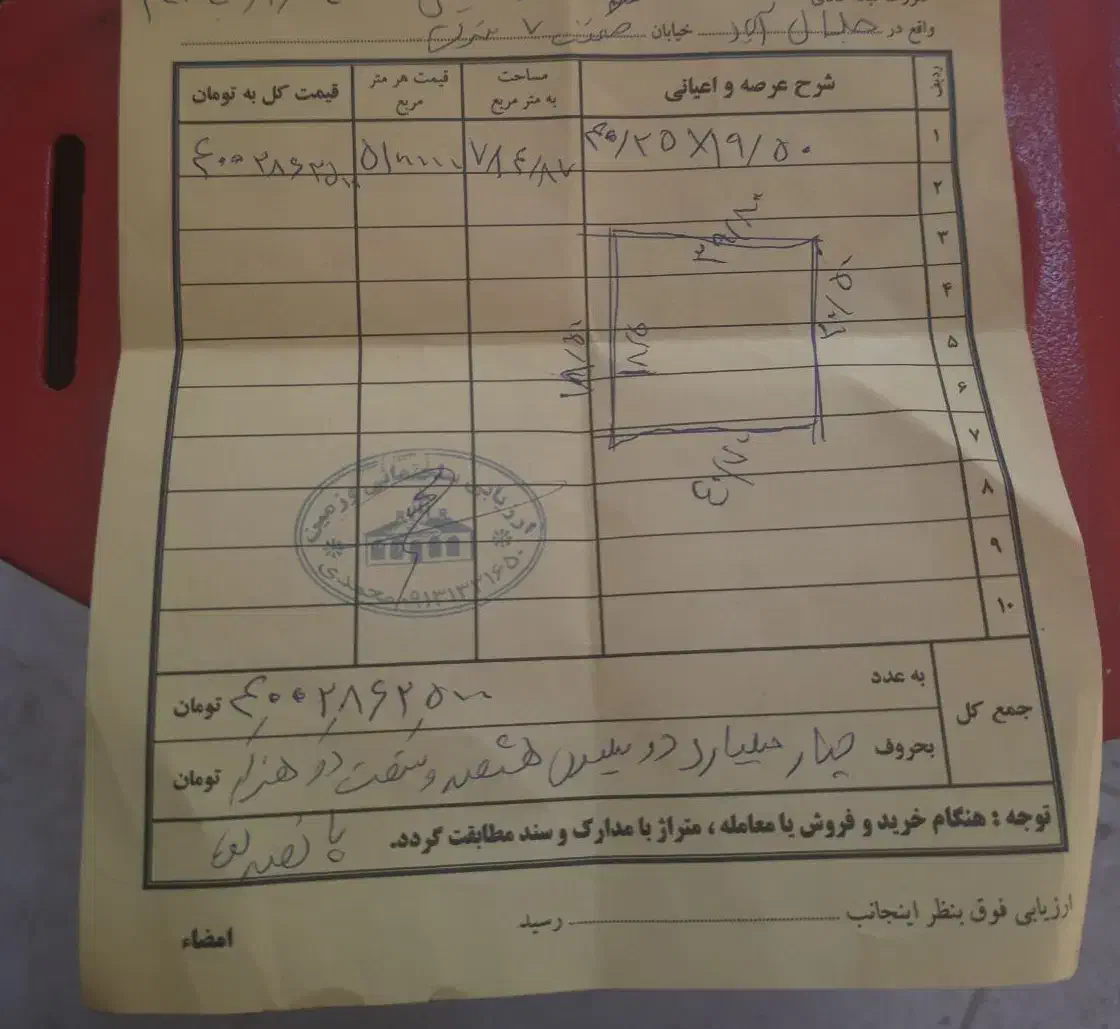 واقع در جلال آباد خیابان صنعت ۷ شرقی
ردیف شرح عرصه و اعیانی مساحت به متر مربع قیمت هر متر مربع قیمت کل به تومان
۱ ۴۰/۲۵×۱۹/۵۰ ۷۸۴/۸۷ ۵/۱۰۰۰۰۰ ۴۰۰۲۸۶۲۵۰۰
۲
۳ ۳۹/۸۰
۴ ۲۰/۵۰
۵ ۱۹/۵۰ ۱۸/۵
۶
۷
۸ ۴۰/۷۰
۹
۱۰
ارزیابی ساختمانی و زمین
محمدی ۰۹۱۳۱۳۲۱۶۵۰
جمع کل
به عدد ۴۰۰۲۸۶۲۵۰۰ تومان
بحروف چهار میلیارد دو میلیون هشتصد و شصت دو هزار تومان
پانصد تومان
توجه : هنگام خرید و فروش یا معامله ، متراژ با مدارک و سند مطابقت گردد.
ارزیابی فوق بنظر اینجانب رسید
امضاء